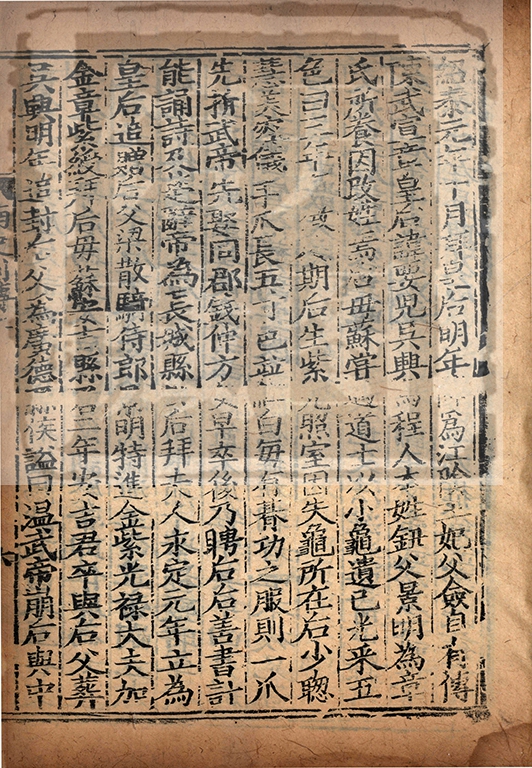 紹泰元年十月拜皇后明年降爲江陰王妃父僉自有傳
陳武宣章皇后諱要兒吳興烏程人本姓鈕父景明為章
氏所養因改姓焉后母蘇甞遇道士以小龜遺已光采五
色曰三年有徵及期后生紫光照室因失龜所在后少聦
慧美容儀手爪長五寸色並紅白每有朞功之服則一爪
先折武帝先娶同郡錢仲方女早卒後乃聘后后善書計
能誦詩及楚辭帝為長城縣公后拜夫人永定元年立為
皇后追贈后父梁散騎侍郎景明特進金紫光禄大夫加
金章紫綬拜后母蘇安吉縣君二年安吉君卒與后父葬
吳興明年追封后父為廣德縣侯謚曰温武帝崩后與中